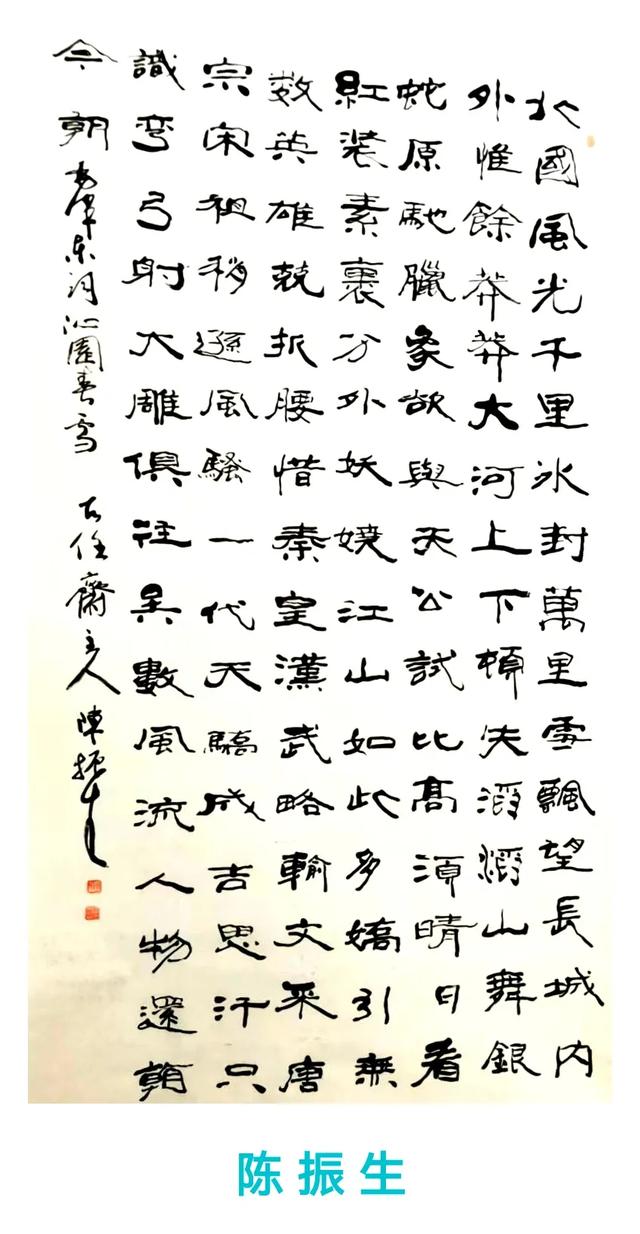 北國風光千里冰封萬里雪飄望長城内
外惟餘莽莽大河上下頓失滔滔山舞銀
蛇原馳臘象欲與天公試比高須晴日看
紅装素裹分外妖嬈江山如此多嬌引無
数英雄兢折腰惜秦皇漢武略輸文采唐
宗宋祖稍遜風騷一代天驕成吉思汗只
識弯弓射大雕俱往矣數風流人物還
今朝 毛澤東詞沁園春雪 古任齋主人陳振生
陈振生